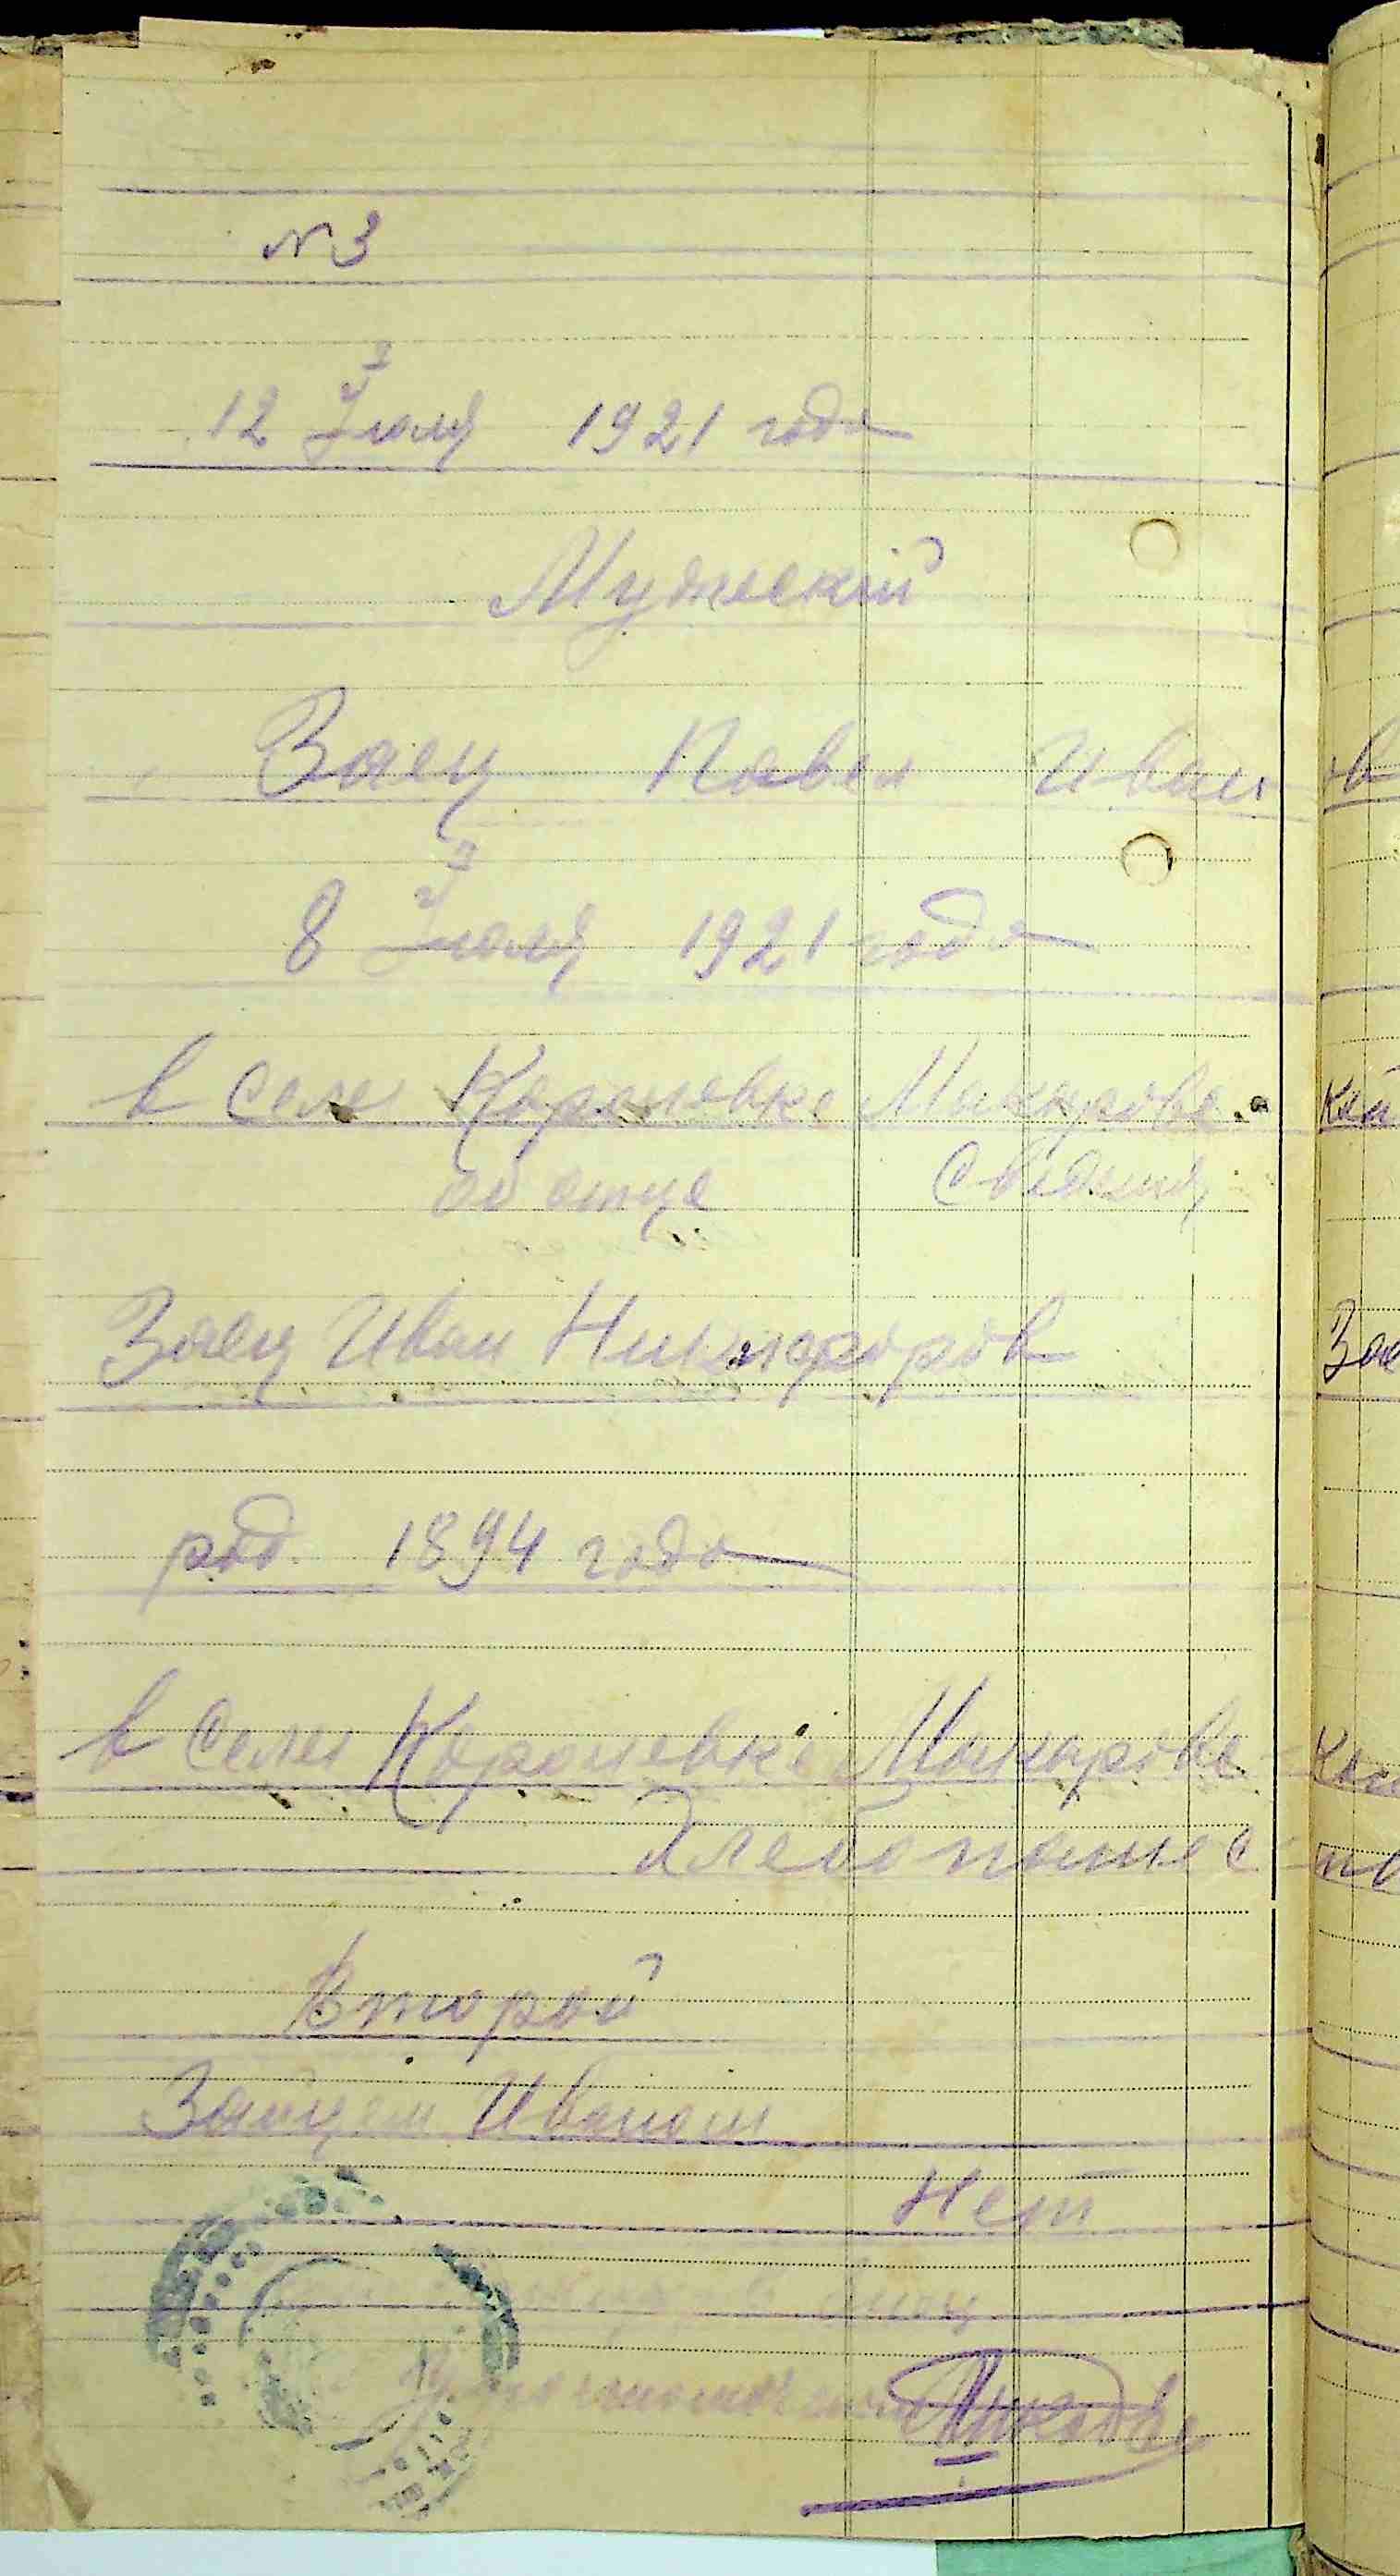 № 3
12 Июля 1921 года
Мужский
Заец Павел Иванов
8 Июля 1921 года
в селе Королевке Макаровс кой
об отце Сведения
Заец Иван Никифоров Зае
род. 1894 года
в селе Королевке Макаровс кой
Хлебопашес тв
Второй
Зайцем Иваном
Нет
отец